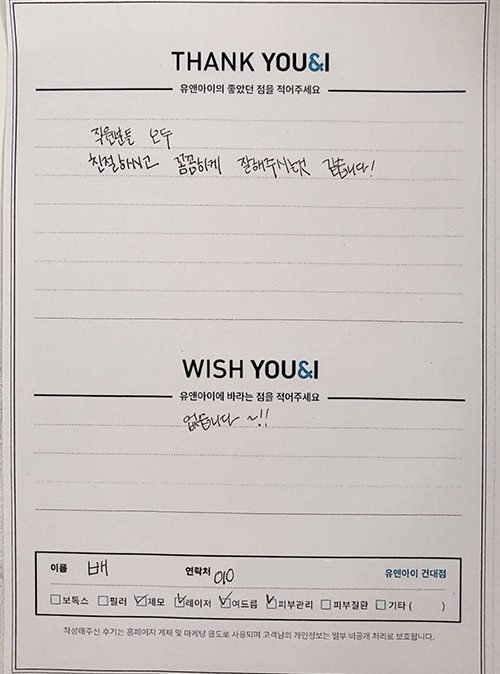 THANK YOU&I
유앤아이의 좋았던 점을 적어주세요
직원분들 모두
친절하시고 꼼꼼하게 잘해주시는것 같습니다!
WISH YOU&I
유앤아이에 바라는 점을 적어주세요
없습니다 ~!!
이름 배 연락처 010 유앤아이 건대점
보톡스 필러 제모 레이저 여드름 피부관리 피부질환 기타 ( )
작성해주신 후기는 홈페이지 게재 및 마케팅 용도로 사용되며 고객님의 개인정보는 일부 비공개 처리로 보호됩니다.